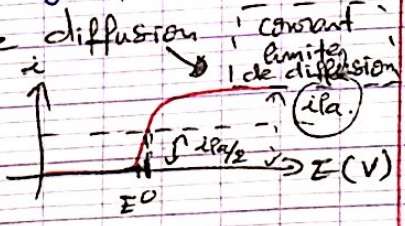 diffusion
courant
limite
de diffusion
i
ila
ila/2
E (V)
E°